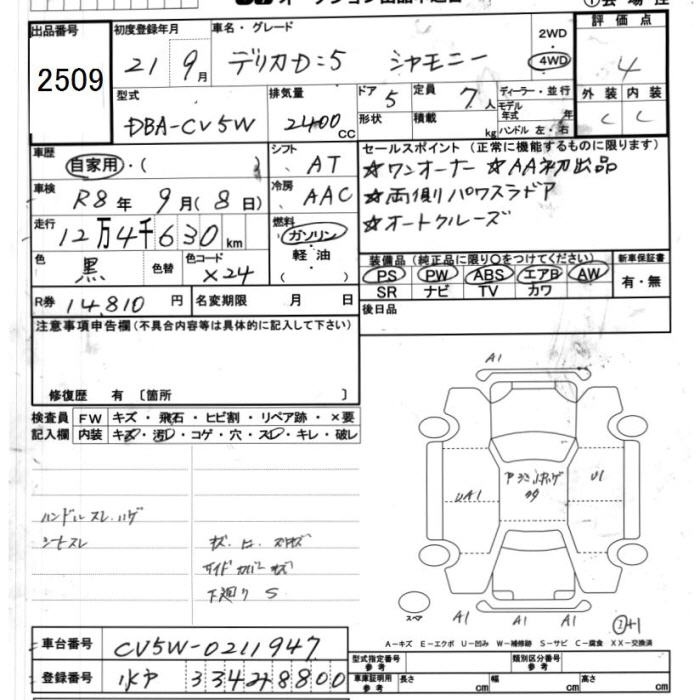 出品番号
2509
初度登録年月
21 9月
車名・グレード
デリカD:5 シャモニー
2WD
4WD
評価点
4
型式
DBA-CV5W
排気量
2400cc
ドア 5
形状
定員 7人
積載 kg
ディーラー・並行
モデル年式 年
ハンドル 左・右
外装 内装
C C
車歴
自家用・( )
シフト
AT
車検
R8年 9月(8日)
冷房
AAC
セールスポイント(正常に機能するものに限ります)
☆ワンオーナー ☆AA初出品
☆両側パワスラドア
☆オートクルーズ
走行
12万4千630km
燃料
ガソリン
軽油
( )
色
黒
色替
色コード
X24
装備品(純正品に限り〇をつけてください)
PS PW ABS エアB AW
SR ナビ TV カワ
新車保証書
有・無
R券 14,810円
名変期限 月 日
後日品
注意事項申告欄(不具合内容等は具体的に記入して下さい)
修復歴 有〔箇所 〕
検査員記入欄
FW キズ・飛石・ヒビ割・リペア跡・×要
内装 キズ・汚レ・コゲ・穴・スレ・キレ・破レ
ハンドルスレ.ハゲ
シートスレ
下廻り S
A1
UA1
U1
A1
A1
A1
スペア
A-キズ E-エクボ U-凹み W-補修跡 S-サビ C-腐食 XX-交換済
車台番号
CV5W-0211947
登録番号
型式指定番号
参考
類別区分番号
参考
車庫証明用
参考
長さ cm
幅 cm
高さ cm